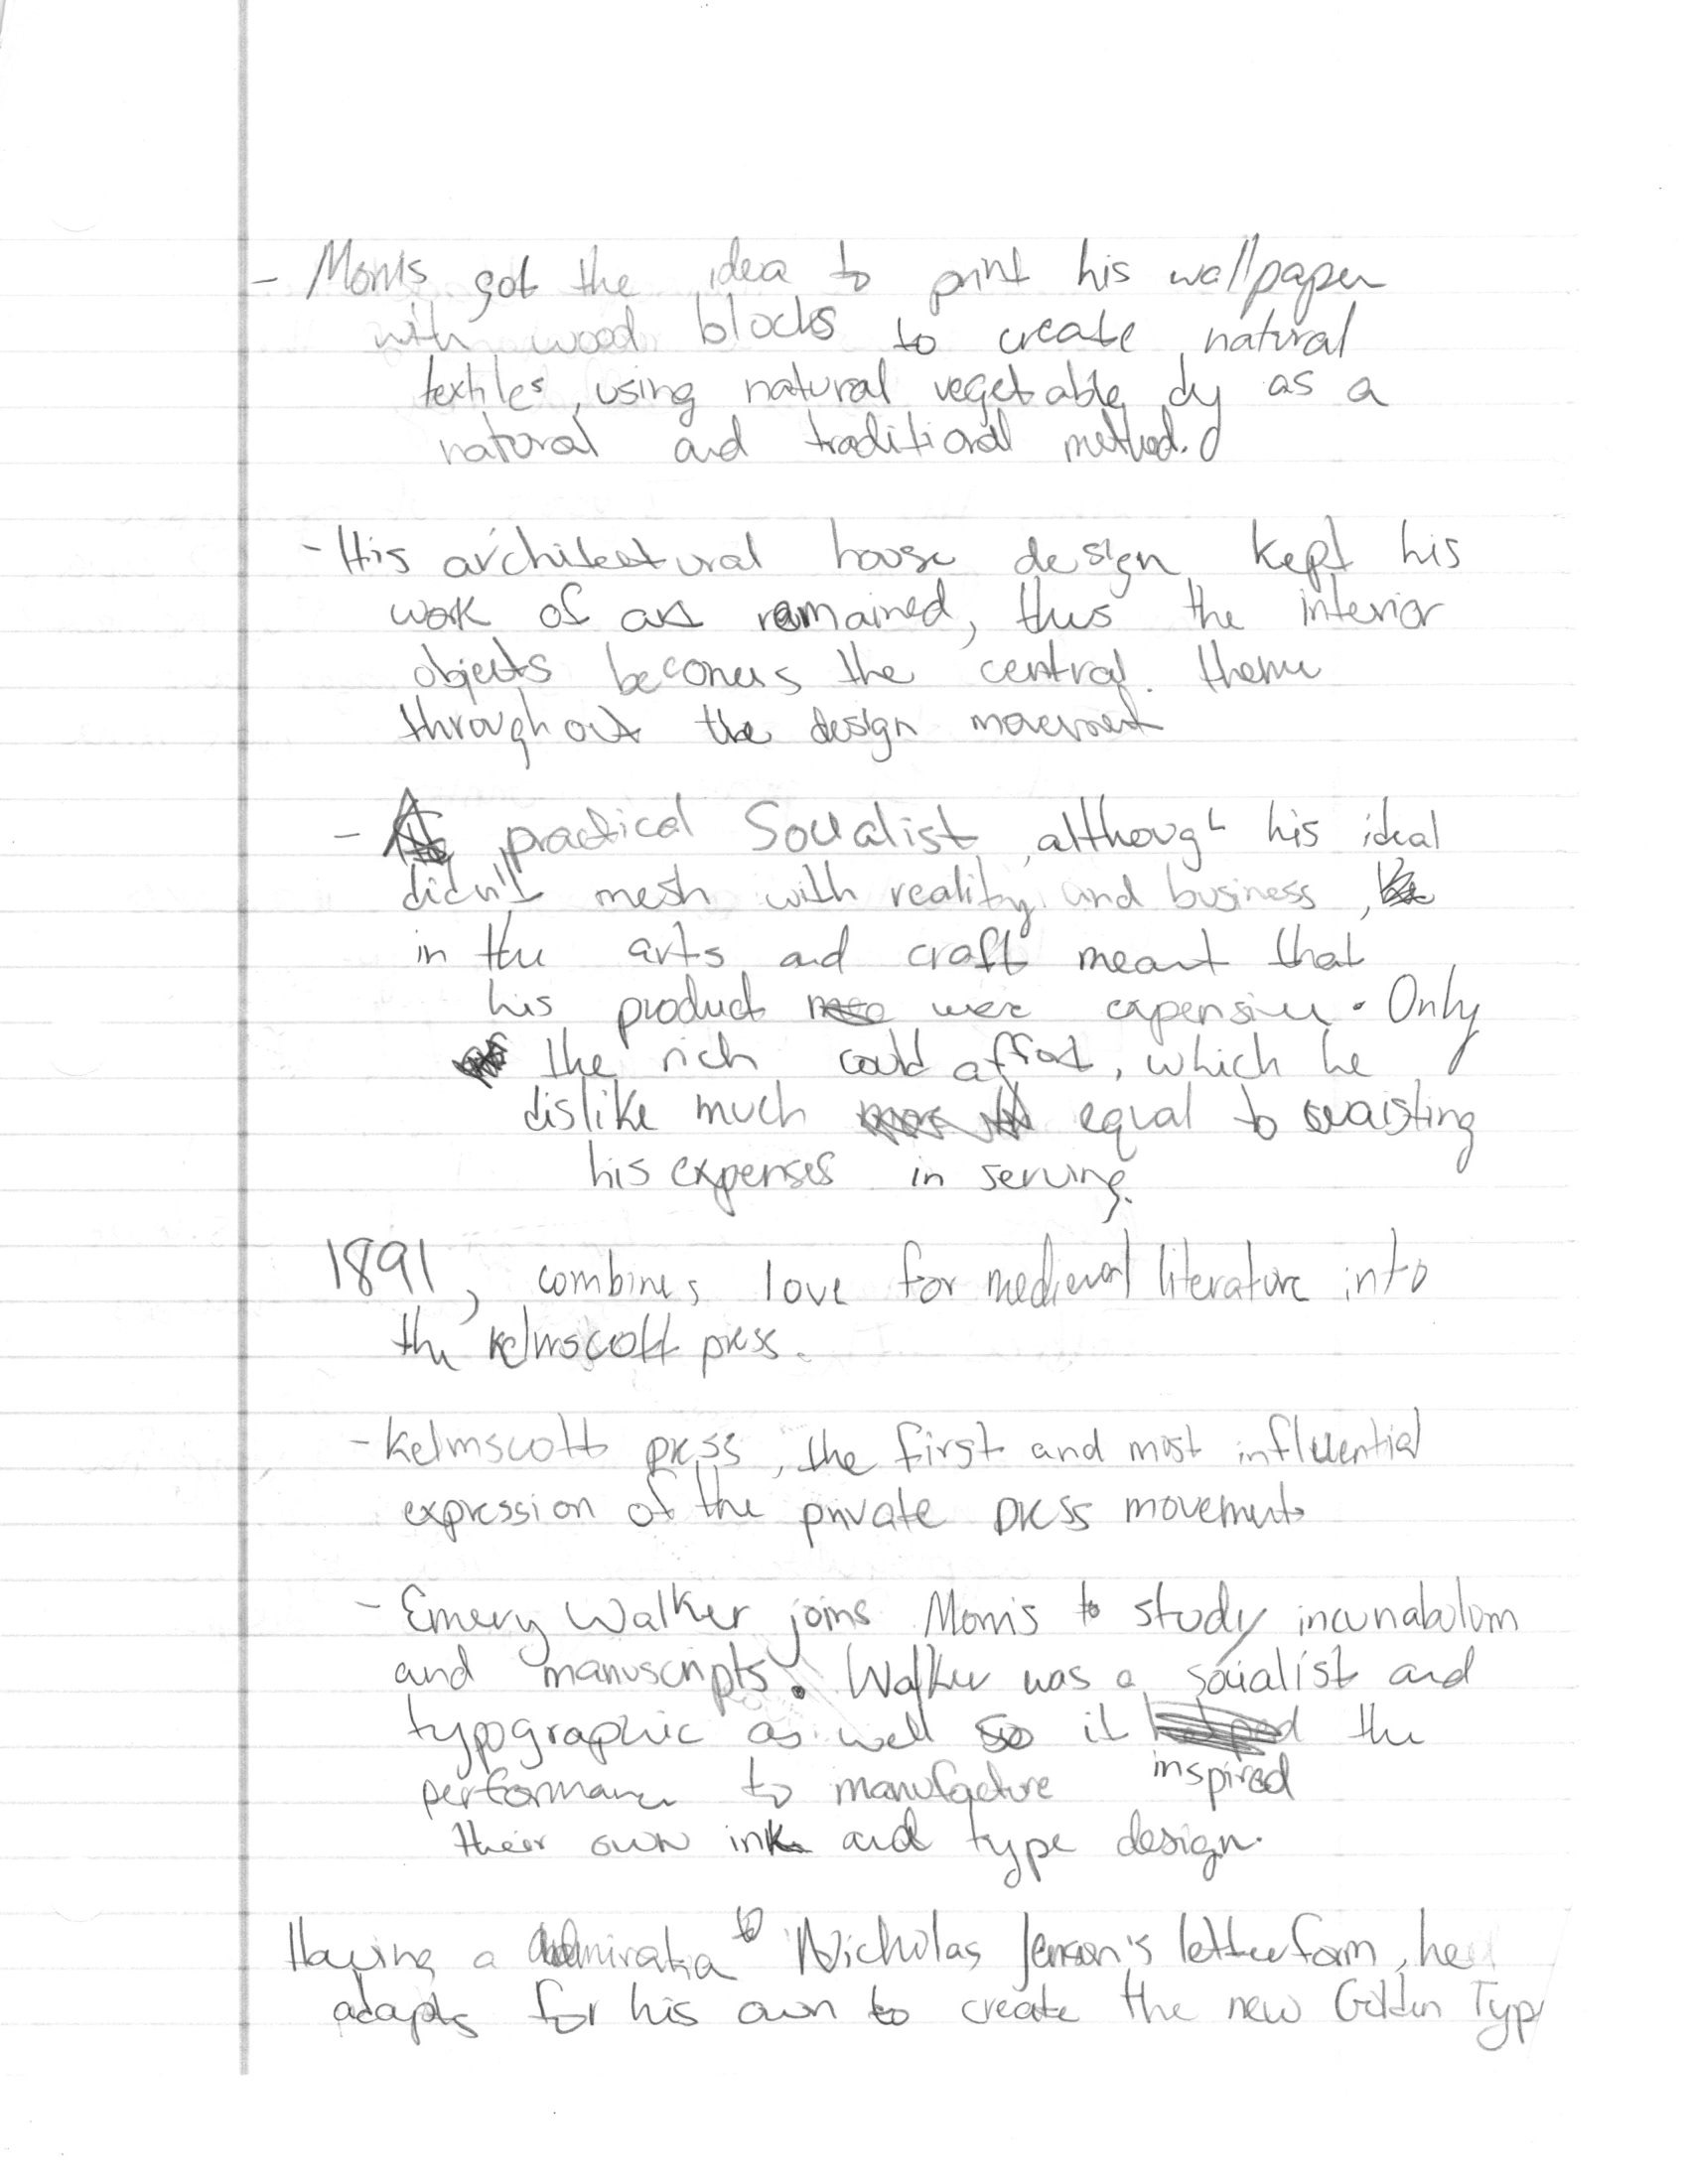 - Morris got the idea to print his wallpaper
with wood blocks to create natural
textiles, using natural vegetable dy as a
natural and traditional method.
- His architectural house design kept his
work of art remained, thus the interior
objects becomes the central theme
throughout the design movement
- A practical Socialist, although his ideal
didn't mesh with reality and business,
in the arts and craft meant that
his product were expensive. Only
the rich could afford, which he
dislike much equal to waisting
his expenses in serving.
1891, combines love for medieval literature into
the Kelmscott press.
- Kelmscott press, the first and most influential
expression of the private press movement
- Emery Walker joins Morris to study incunabulum
and manuscripts. Walker was a socialist and
typographic as well so it the
performance to manufacture inspired
their own ink and type design.
Having a admiration to Nicholas Jenson's letterform, he
adapts for his own to create the new Golden Typ